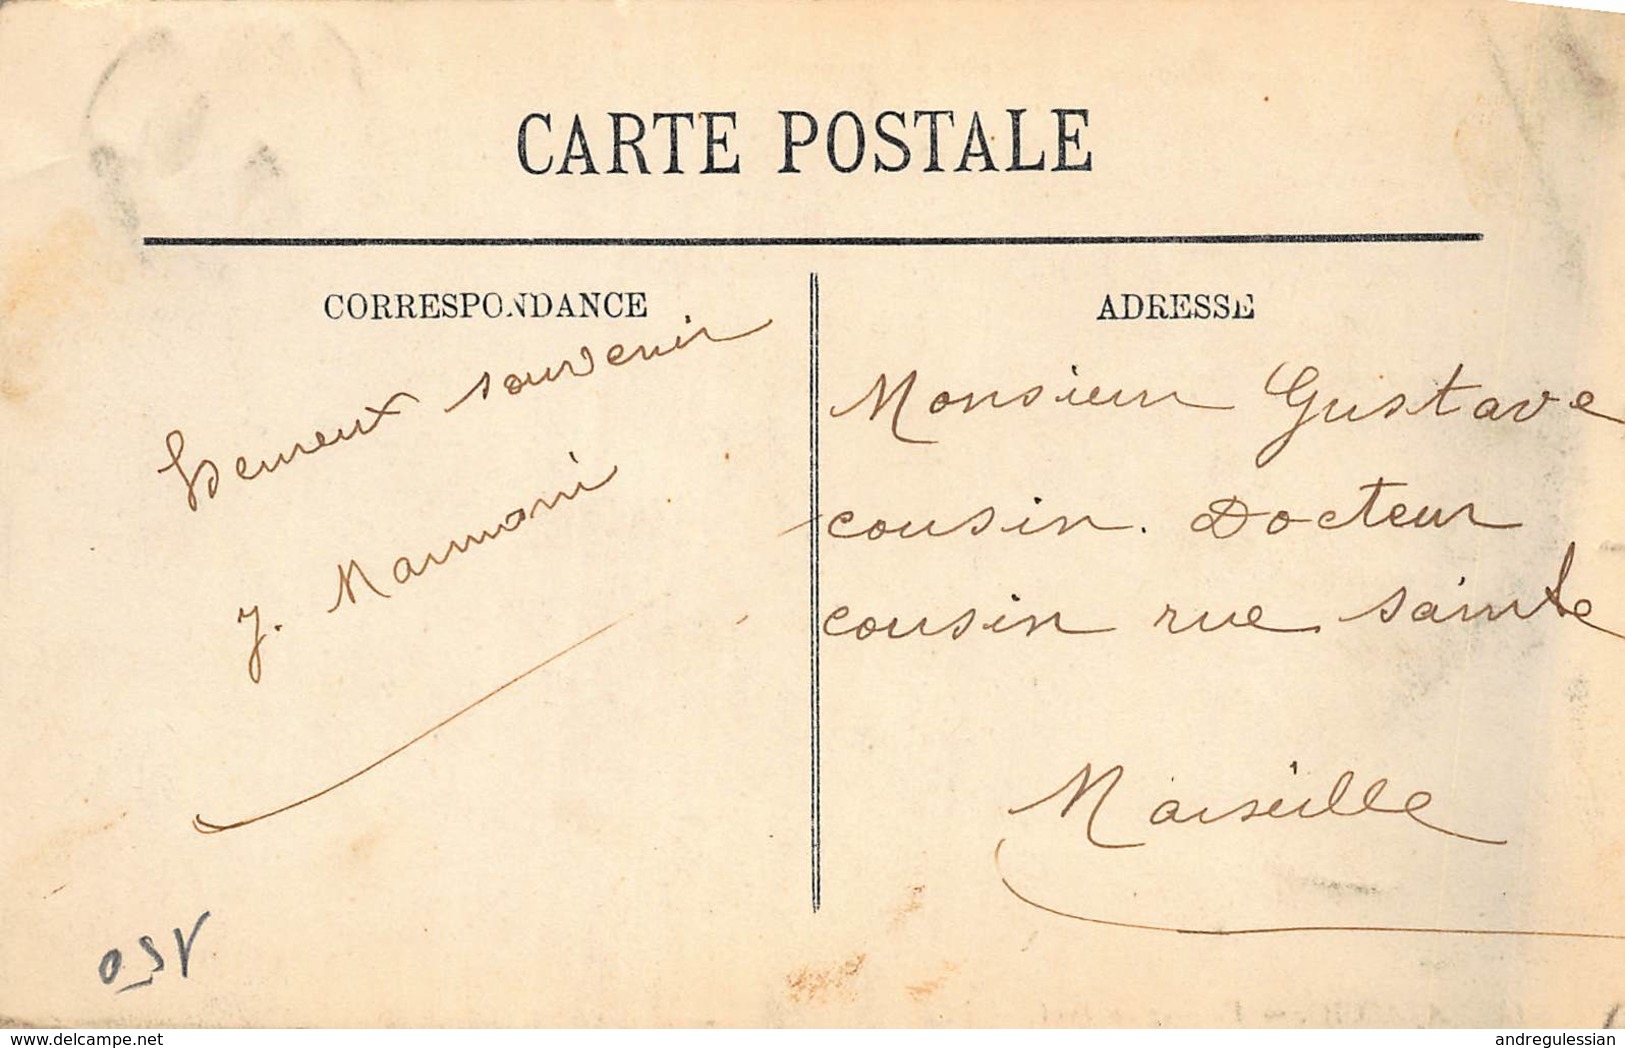 CARTE POSTALE
CORRESPONDANCE
Heureux souvenir
J. Marmoni
ADRESSE
Monsieur Gustave
cousin. Docteur
cousin rue sainte
Marseille
andregulessian